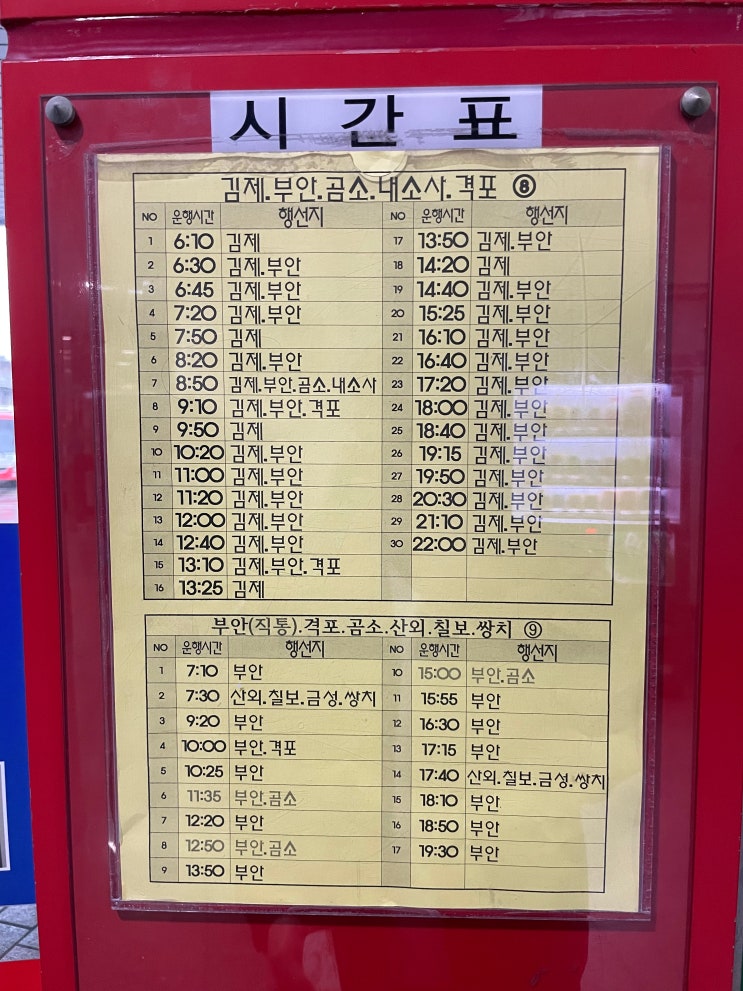 시간표
김제.부안.곰소.내소사.격포 ⑧
NO 운행시간 행선지 NO 운행시간 행선지
1 6:10 김제 17 13:50 김제.부안
2 6:30 김제.부안 18 14:20 김제
3 6:45 김제.부안 19 14:40 김제.부안
4 7:20 김제.부안 20 15:25 김제.부안
5 7:50 김제 21 16:10 김제.부안
6 8:20 김제.부안 22 16:40 김제.부안
7 8:50 김제.부안.곰소.내소사 23 17:20 김제.부안
8 9:10 김제.부안.격포 24 18:00 김제.부안
9 9:50 김제 25 18:40 김제.부안
10 10:20 김제.부안 26 19:15 김제.부안
11 11:00 김제.부안 27 19:50 김제.부안
12 11:20 김제.부안 28 20:30 김제.부안
13 12:00 김제.부안 29 21:10 김제.부안
14 12:40 김제.부안 30 22:00 김제.부안
15 13:10 김제.부안.격포
16 13:25 김제
부안(직통).격포.곰소.산외.칠보.쌍치 ⑨
NO 운행시간 행선지 NO 운행시간 행선지
1 7:10 부안 10 15:00 부안.곰소
2 7:30 산외.칠보.금성.쌍치 11 15:55 부안
3 9:20 부안 12 16:30 부안
4 10:00 부안.격포 13 17:15 부안
5 10:25 부안 14 17:40 산외.칠보.금성.쌍치
6 11:35 부안.곰소 15 18:10 부안
7 12:20 부안 16 18:50 부안
8 12:50 부안.곰소 17 19:30 부안
9 13:50 부안